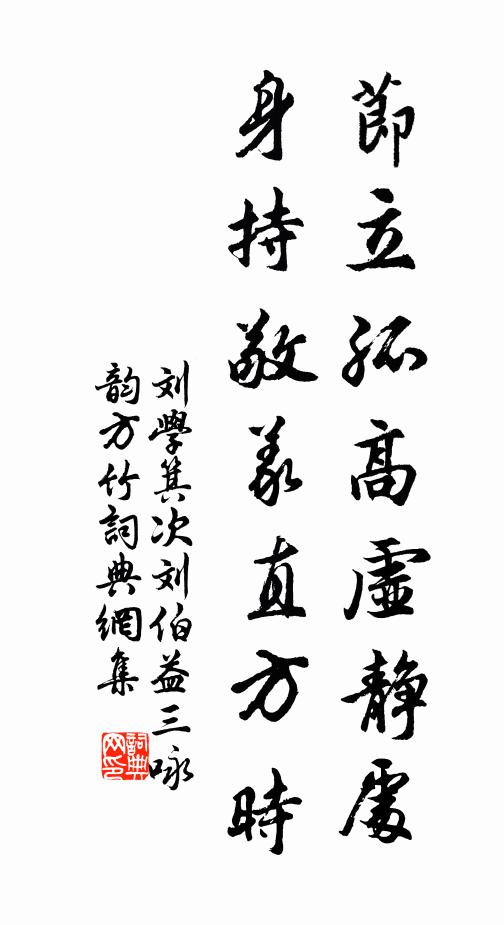 節立孤高虛靜處
身持敬義直方時
刘學箕次刘伯益三咏
韵方竹詞典網集
詞典网印